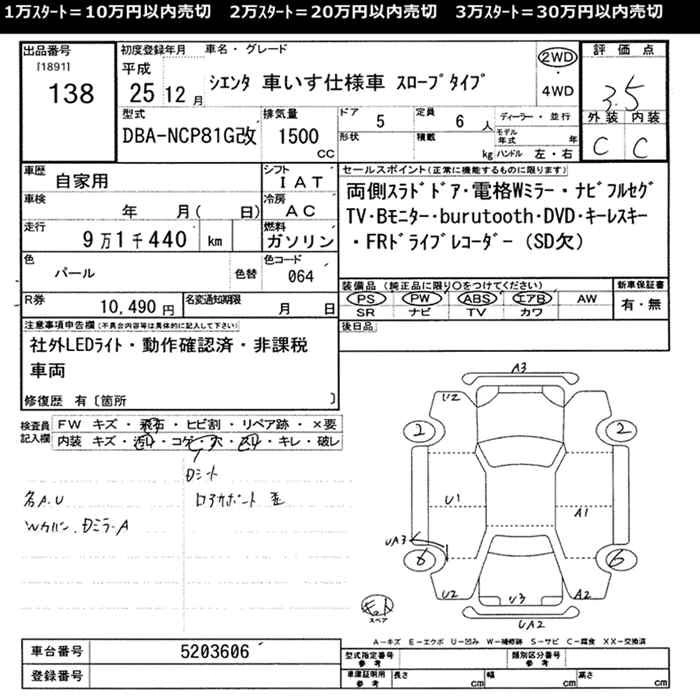 1万スタート=10万円以内売切 2万スタート=20万円以内売切 3万スタート=30万円以内売切
出品番号
[1891]
138
初度登録年月
平成
25 12月
車名・グレード
シエンタ 車いす仕様車 スロープタイプ
2WD
4WD
評価点
3.5
外装 内装
C C
型式
DBA-NCP81G改
排気量
1500
cc
ドア 5
定員 6人
形状
積載
kg
ディーラー・並行
モデル年式 年
ハンドル 左・右
車歴
自家用
シフト
IAT
車検
年 月( 日)
冷房
AC
走行
9万1千440 km
燃料
ガソリン
色
パール
色替
色コード
064
R券
10,490円
名変通知期限
月 日
セールスポイント(正常に機能するものに限ります)
両側スライドドア・電格Wミラー・ナビフルセグ
TV・Bモニター・burutooth・DVD・キーレスキー
・FRドライブレコーダー (SD欠)
装備品 (純正品に限り○をつけてください)
PS PW ABS エアB AW
SR ナビ TV カワ
新車保証書
有・無
後日品
注意事項申告欄(不具合内容等は具体的に記入して下さい)
社外LEDライト・動作確認済・非課税
車両
修復歴 有〔箇所 〕
検査員
記入欄
FW キズ・飛石・ヒビ割・リペア跡・×要
内装 キズ・汚れ・コゲ・穴・スレ・キレ・破レ
Dシート
各A.U
Wカバー、DミラーA
A3
U2
2
2
U1
A1
UA3
6
6
U2
U3
A2
UA2
スペア
A-キズ E-エクボ U-凹み W-補修跡 S-サビ C-腐食 XX-交換済
車台番号
5203606
登録番号
型式指定番号
参考
類別区分番号
参考
車庫証明用
参考
長さ cm
幅 cm
高さ cm